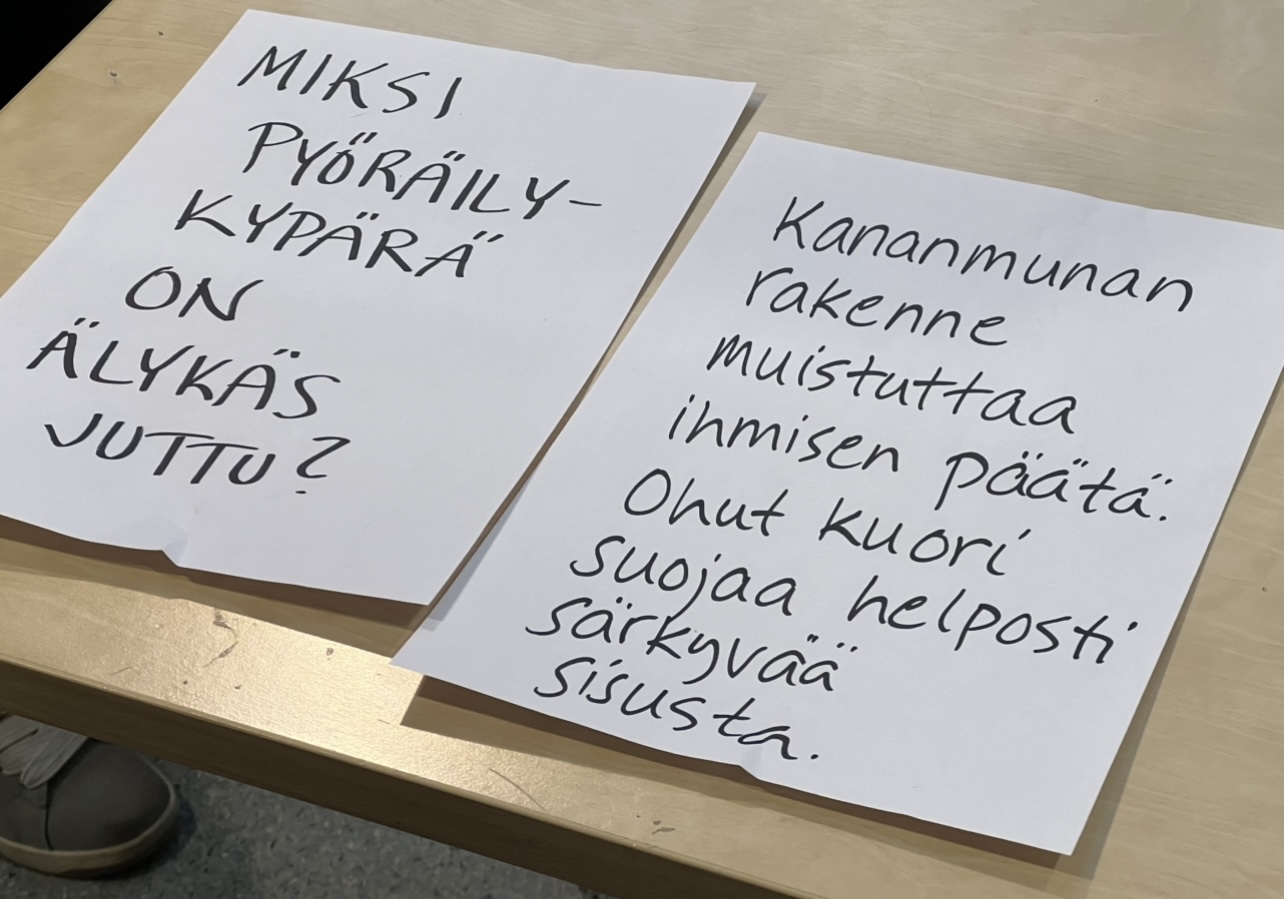 MIKSI
PYÖRÄILY-
KYPÄRÄ
ON
ÄLYKÄS
JUTTU?
Kananmunan
rakenne
muistuttaa
ihmisen päätä.
Ohut kuori
suojaa helposti
särkyvää
sisusta.